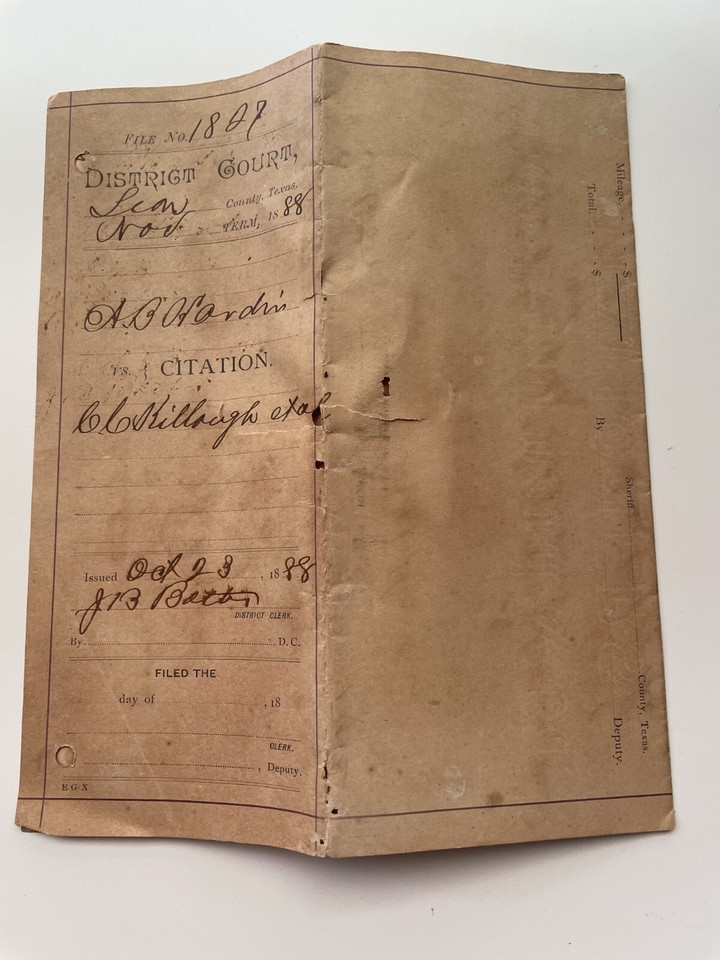 FILE No. 1827
DISTRICT COURT,
Leon County, Texas.
Nov. TERM, 1888
A B Hardin
vs. CITATION.
C C Killough et al
Issued Oct 23, 1888
J B
DISTRICT CLERK.
By D.C.
FILED THE
day of , 18
CLERK.
, Deputy.
E G-X
Mileage, - - - - $
Total, - - - $
Sheriff County, Texas.
By Deputy.